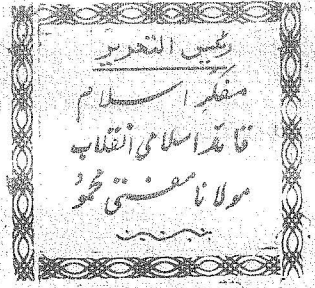 رئیس التحریر
مفکر اسلام
قائد اسلامی انقلاب
مولانا مفتی محمودؒ